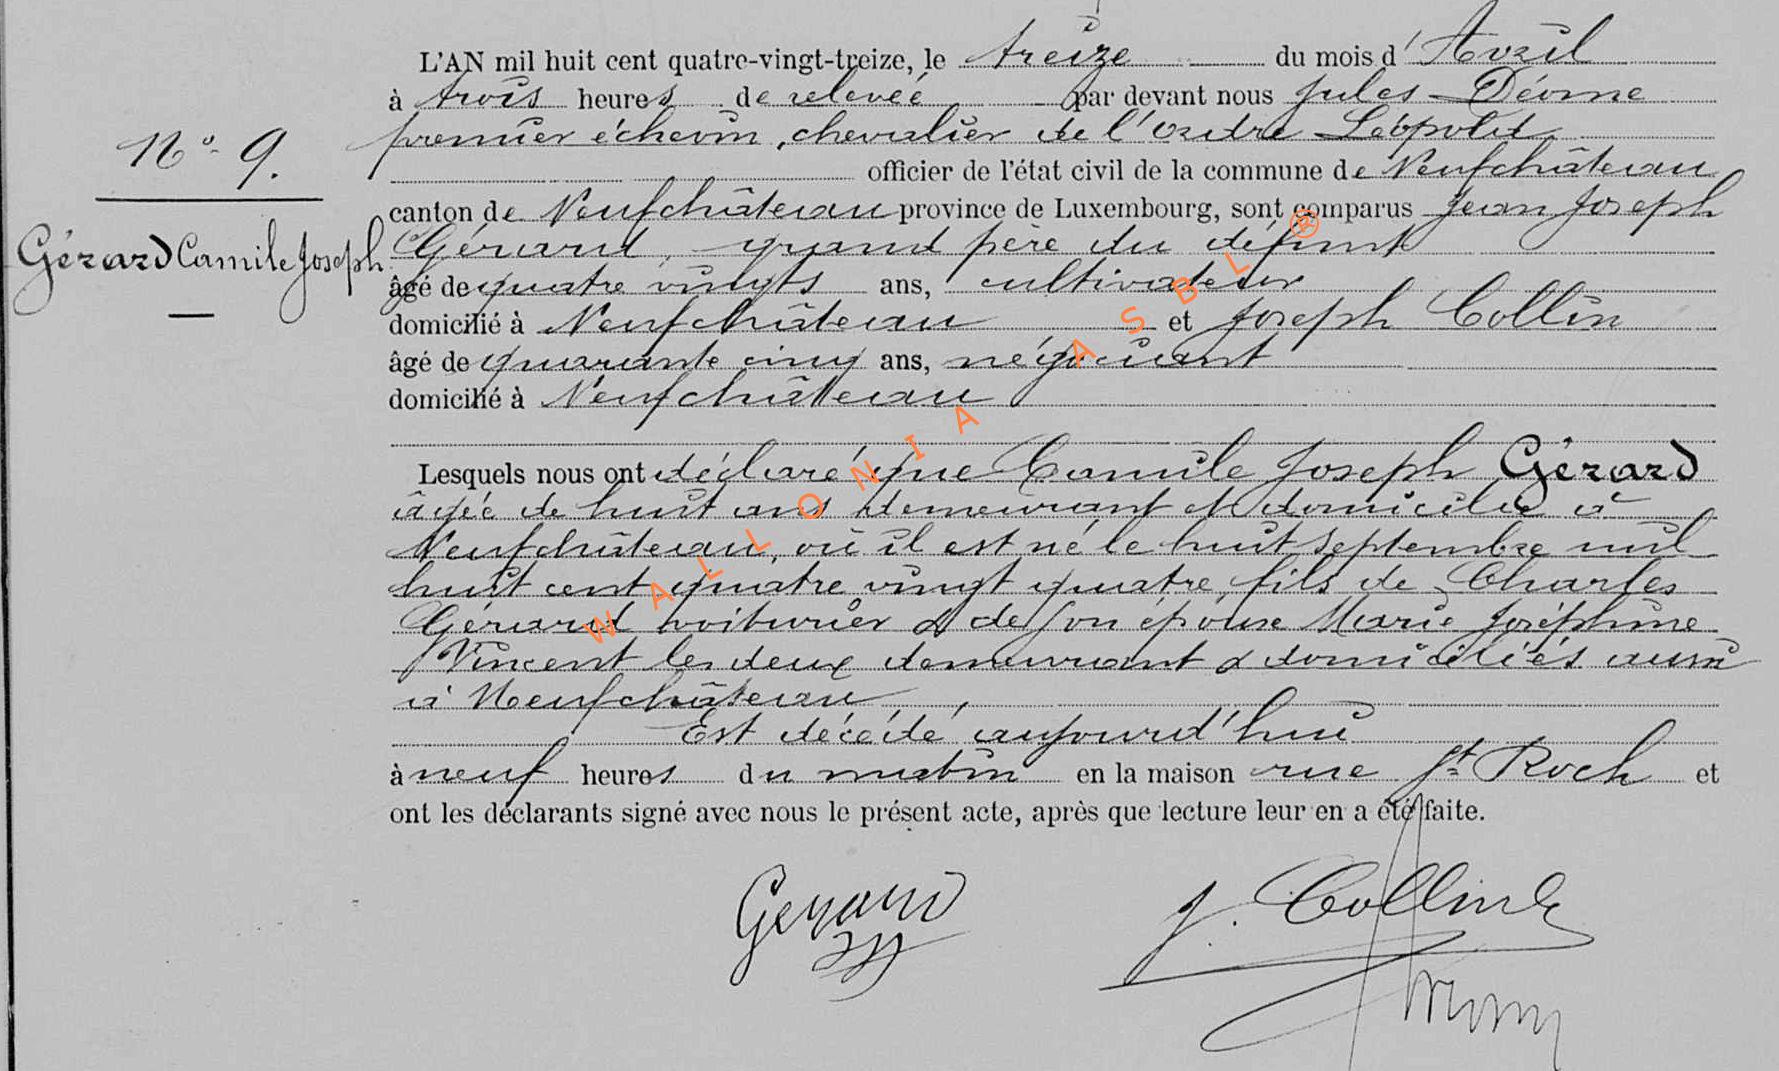 L'AN mil huit cent quatre-vingt-treize, le treize du mois d'Avril
à trois heures de relevée par devant nous Jules
premier échevin, chevalier de l'ordre Léopold,
N° 9.
officier de l'état civil de la commune de Neufchâteau
canton de Neufchâteau province de Luxembourg, sont comparus Jean Joseph
Gérard Camile Joseph
Gérard, grand père du défunt
âgé de quatre vingts ans, cultivateur
domicilié à Neufchâteau et Joseph Collin
âgé de quarante cinq ans, négociant
domicilié à Neufchâteau
Lesquels nous ont déclaré que Camile Joseph Gérard
âgée de huit ans demeurant et domicilié à
Neufchâteau, où il est né le huit septembre mil
huit cent quatre vingt quatre, fils de Charles
Gérard voiturier & de son épouse Marie Joséphine
Vincent les deux demeurant & domiciliés aussi
à Neufchâteau,
Est décédé aujourd'hui
à neuf heures du matin en la maison rue St Roch et
ont les déclarants signé avec nous le présent acte, après que lecture leur en a été faite.
Gerard
J. Collin
WALLONIA ASBL®